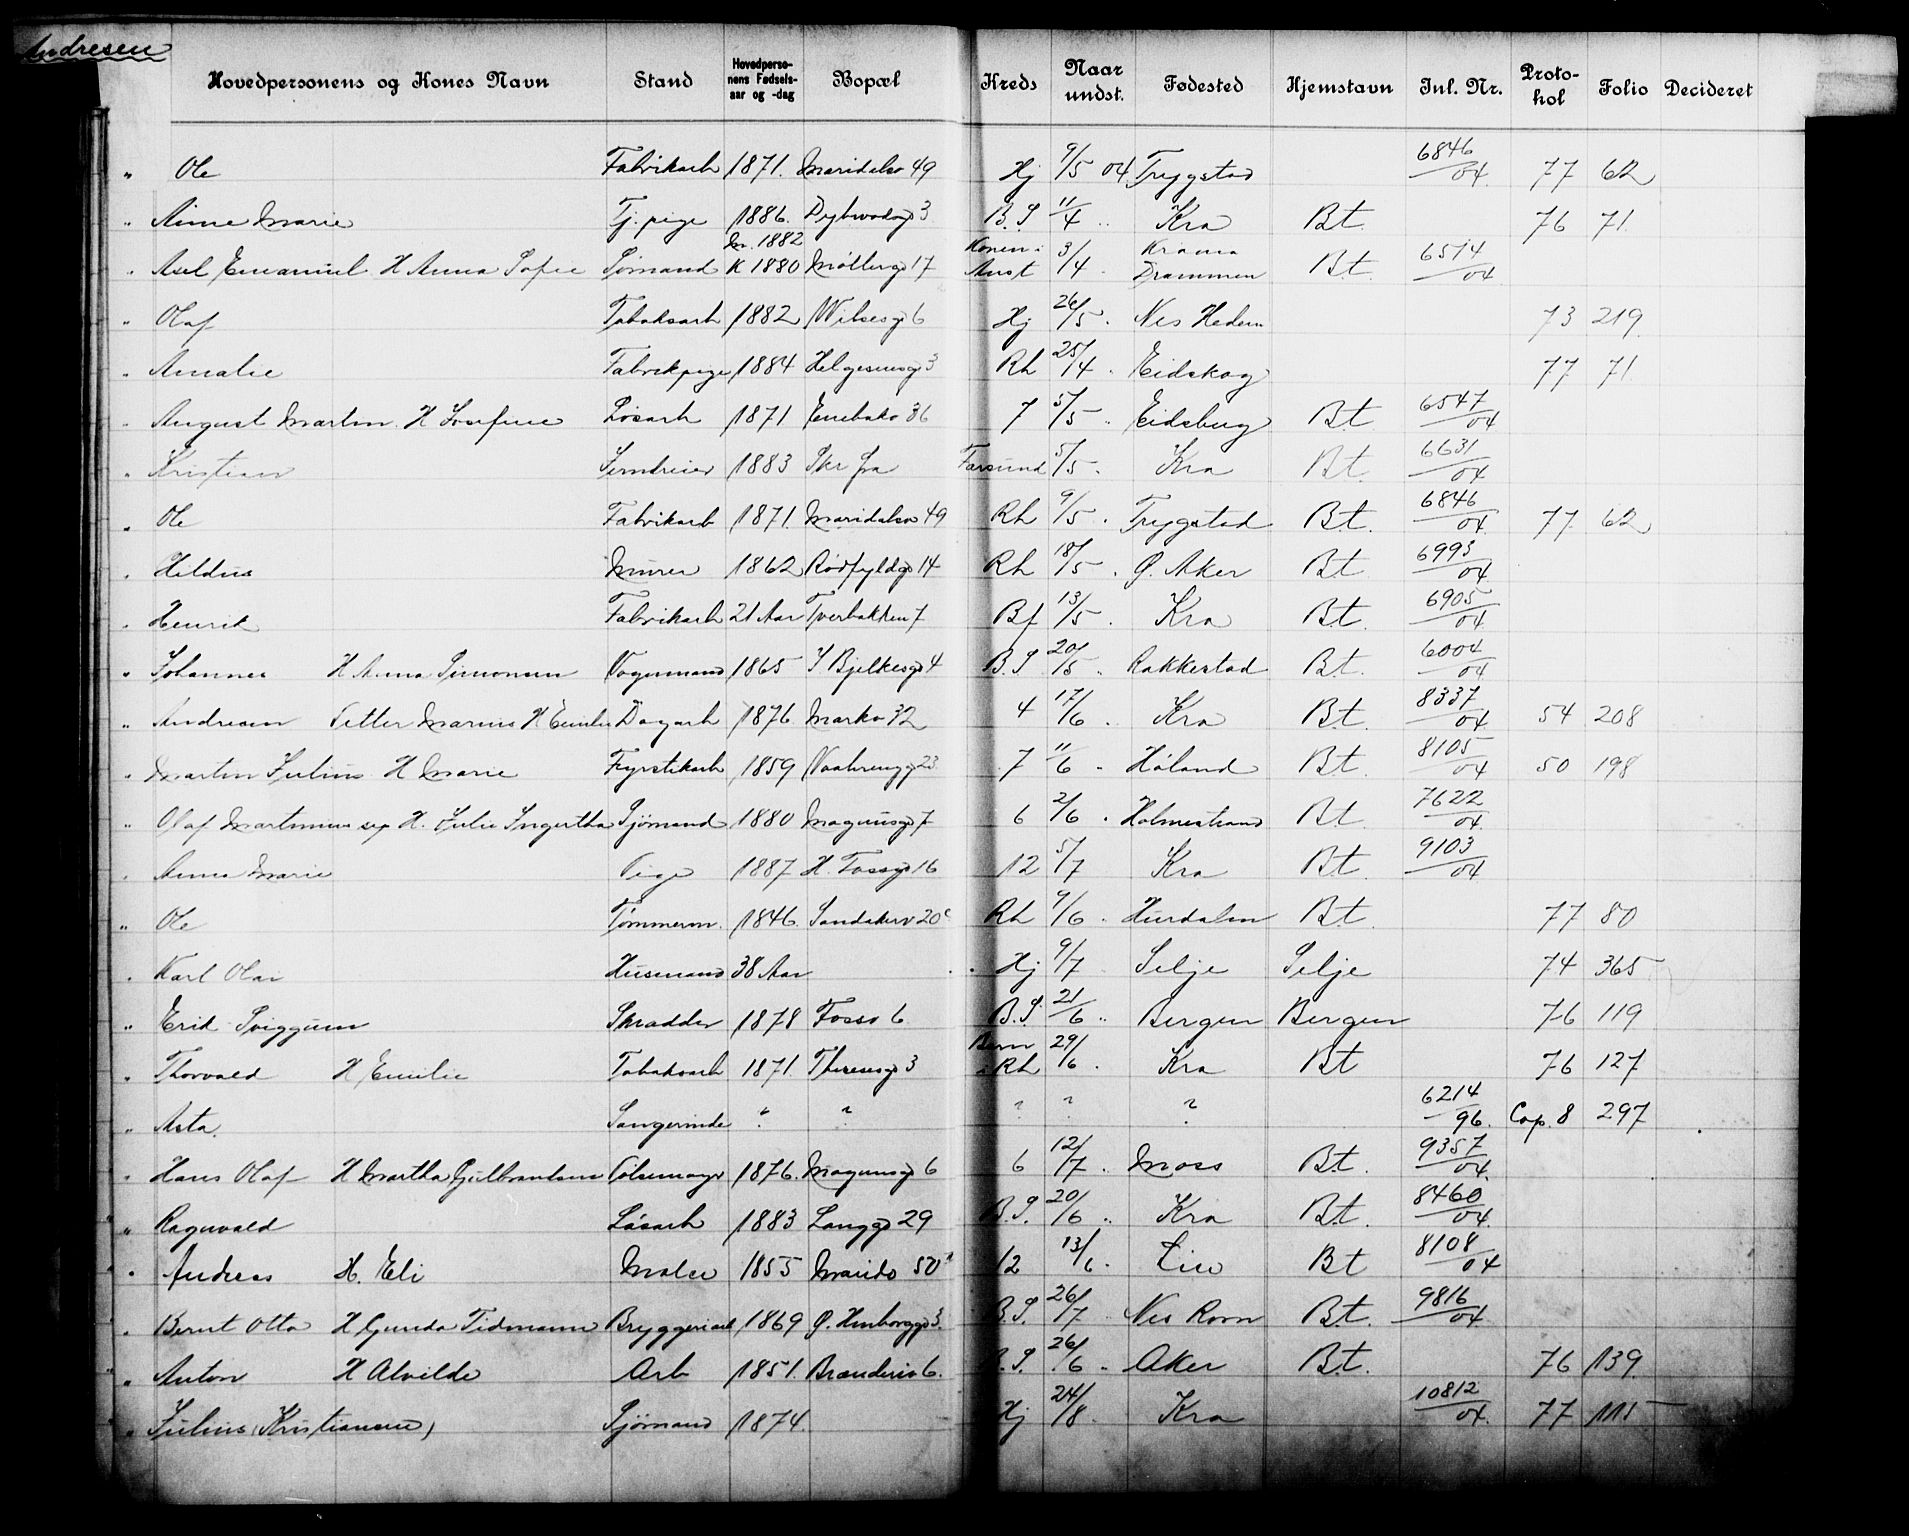 Andresen
Hovedpersonens og Kones Navn Stand Hovedpersonens Fødselsaar og -dag Bopæl Kreds Naar undst. Fødested Hjemstavn Inl. Nr. Protohol Folio Decideret
" Ole Fabrikarb 1871. Maridalsv 49 Hj 9/5 04 Trygstad 6846/04. 77 62
" Anne Marie Tj. pige 1886. 3 B.S 11/4 " Kra Bt. 76 71.
" Axel Emanuel H Anna Sofie Sømand M. 1882 K 1880 Møllergd 17 Konen i Anst 3/4 . Krania Drammen Bt. 6514/04
" Olaf Tobaksarb 1882 Wilsesgd 6 Hj 26/5 . Nes Hedem 73 219.
" Amalie Fabrikpige 1884 Helgesensgd 3 Rh 25/4 . Eidskog 77 71.
" August Martin. H Josefine Løsarb 1871 Enebakv 36 7 5/5 " Eidsberg Bt. 6547/04
" Kristian 1883 Skr fra Farsund 5/5 . Kra Bt. 6631/04
" Ole Fabrikarb 1871. Maridalsv 49 Rh 9/5 . Trygstad Bt. 6846/04. 77 62
" Hildus Murer 1862 Rødfyldgd 14 Rh 18/5 . Ø. Aker Bt 6993/04
" Henrik Fabrikarb 21 Aar Tverbakken 7 Bf 13/5 . Kra Bt. 6905/04
" Johannes H Anna Simonsen Vognmand 1865 J Bjelkesgd 4 B.S 20/5 " Rakkestad Bt. 6004/04
" Andresen Petter Marius H Emilie Dagarb 1876 Markv 32 4 17/6 " Kra Bt. 8337/04. 54 208
" Martin Julius H Marie Fyrstikarb 1859 Vaalerengg 23 7 11/6 " Høland Bt. 8105/04 50 198
" Olaf Martinius sep H. Julie Ingertha Sjømand 1880 Magnusgd 7 6 2/6 . Holmestrand Bt. 7622/04.
" Anna Marie Pige 1887 H. Fossgd 16 12 5/7 Kra Bt. 9103/04
" Ole Tømmerm. 1846. Sandakerv 20c Rh 9/6 . Hurdalen Bt. 77 80
" Karl Olai Husmand 38 Aar Hj 9/7 Selje Selje 74 365
" Erik Sviggum Skrædder 1878 Fossv 6 B.S. 21/6 " Bergen Bergen 76 119
" Thorvald H Emilie Tobaksarb 1871. Theresesgd 3 Barn i Rh 29/6 . Kra Bt 76 127
" Asta. Sangerinde ? ? ? ? ? 6214/96. Cop. 8 297
" Hans Olaf H Martha Gulbrandsen Pølsemager 1876. Magnusgd 6 6 12/7 . Moss Bt. 9357/04.
" Ragnvald Løsarb 1883 Langgd 29 B.S. 20/6 " Kra Bt. 8460/04.
" Andreas H. Eli Maler 1855 Maridv 50 12 13/6 . Lier Bt 8108/04
" Bernt Otto H Gunda Tidmann Bryggeriarb 1869 3. B.S. 26/7 Nes Rom Bt. 9816/04.
" Anton H Alvilde Arb 1851. Brænderiv 6. B.S. 26/6 " Aker Bt. 76 139.
" Julius (Kristiansen) Sjømand 1874. Hj 24/8 . Kra 10812/04. 77 115